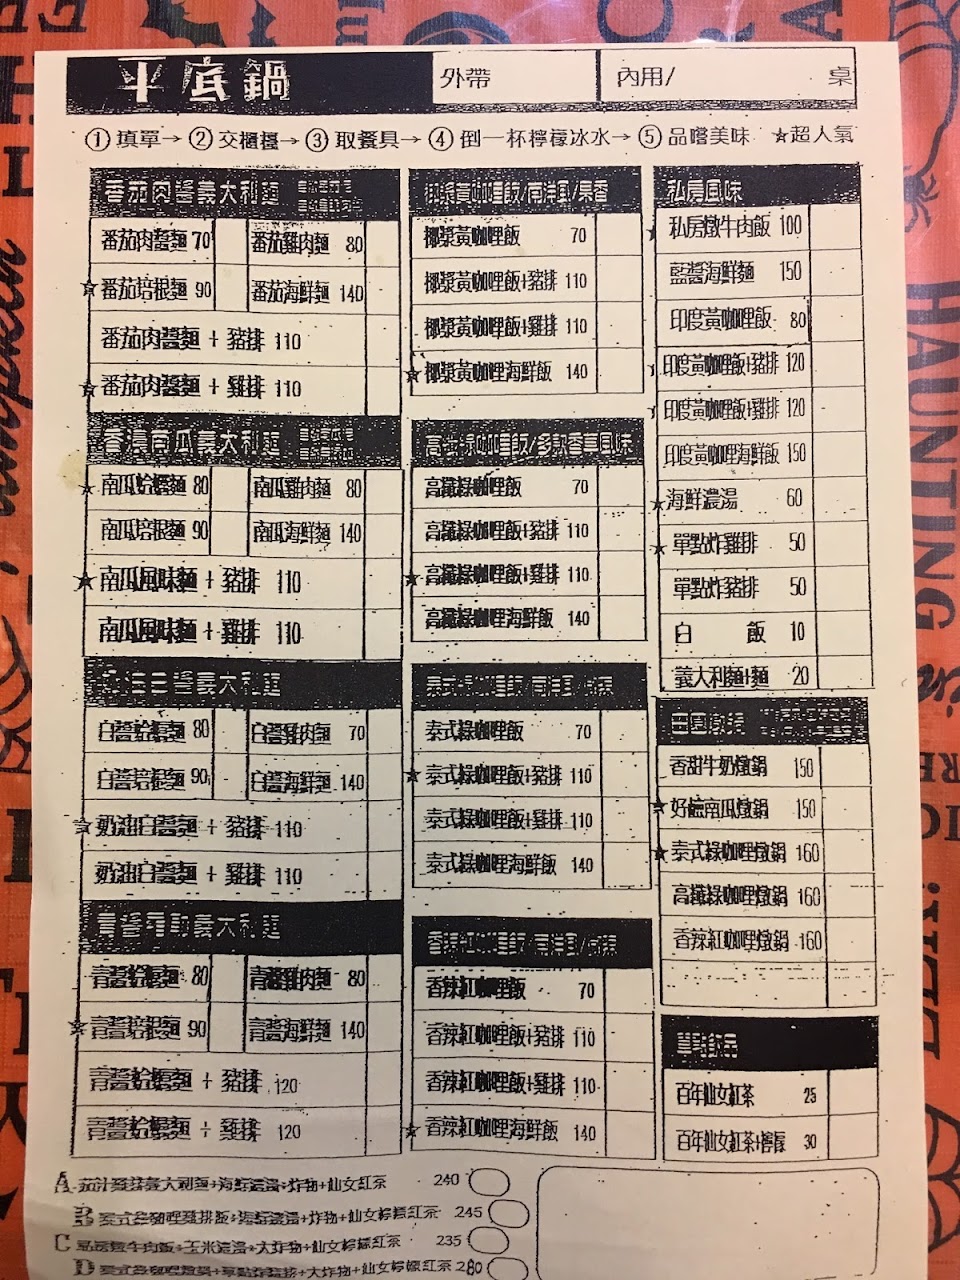 平底鍋
外帶
內用/ 桌
① 填單→ ② 交櫃檯→ ③ 取餐具→ ④ 倒一杯檸檬冰水→ ⑤ 品嚐美味 ★超人氣
番茄肉醬義大利麵
番茄肉醬麵 70 番茄雞肉麵 80
★番茄培根麵 90 番茄海鮮麵 140
番茄肉醬麵 + 豬排 110
★番茄肉醬麵 + 雞排 110
南瓜義大利麵
★南瓜蛤蠣麵 80 南瓜雞肉麵 80
南瓜培根麵 90 南瓜海鮮麵 140
★南瓜風味麵 + 豬排 110
南瓜風味麵 + 雞排 110
白醬義大利麵
白醬蛤蠣麵 80 白醬雞肉麵 70
白醬培根麵 90 白醬海鮮麵 140
★奶油白醬麵 + 豬排 110
奶油白醬麵 + 雞排 110
青醬羅勒義大利麵
青醬蛤蠣麵 80 青醬雞肉麵 80
★青醬培根麵 90 青醬海鮮麵 140
青醬蛤蠣麵 + 豬排 120
青醬蛤蠣麵 + 雞排 120
椰漿黃咖哩飯/南洋風/果香
椰漿黃咖哩飯 70
椰漿黃咖哩飯+豬排 110
椰漿黃咖哩飯+雞排 110
★椰漿黃咖哩海鮮飯 140
高纖綠咖哩飯 70
高纖綠咖哩飯+豬排 110
★高纖綠咖哩飯+雞排 110
高纖綠咖哩海鮮飯 140
泰式綠咖哩飯 70
★泰式綠咖哩飯+豬排 110
泰式綠咖哩飯+雞排 110
★泰式綠咖哩海鮮飯 140
香辣紅咖哩飯/南洋風
香辣紅咖哩飯 70
香辣紅咖哩飯+豬排 110
香辣紅咖哩飯+雞排 110
★香辣紅咖哩海鮮飯 140
私房風味
★私房燉牛肉飯 100
藍醬海鮮麵 150
印度黃咖哩飯 80
印度黃咖哩飯+豬排 120
印度黃咖哩飯+雞排 120
印度黃咖哩海鮮飯 150
★海鮮濃湯 60
★單點炸雞排 50
單點炸豬排 50
白飯 10
義大利麵+麵 20
田園燉鍋
香甜牛奶燉鍋 150
★好險南瓜燉鍋 150
★泰式綠咖哩燉鍋 160
高纖綠咖哩燉鍋 160
香辣紅咖哩燉鍋 160
百年仙女紅茶 25
百年仙女紅茶+檸檬 30
A 茄汁雞排義大利麵+海鮮濃湯+炸物+仙女紅茶 240
B 泰式綠咖哩雞排飯+海鮮濃湯+炸物+仙女檸檬紅茶 245
C 私房燉牛肉飯+玉米濃湯+大炸物+仙女檸檬紅茶 235
D 泰式綠咖哩燉鍋+單點炸雞排+大炸物+仙女檸檬紅茶 280